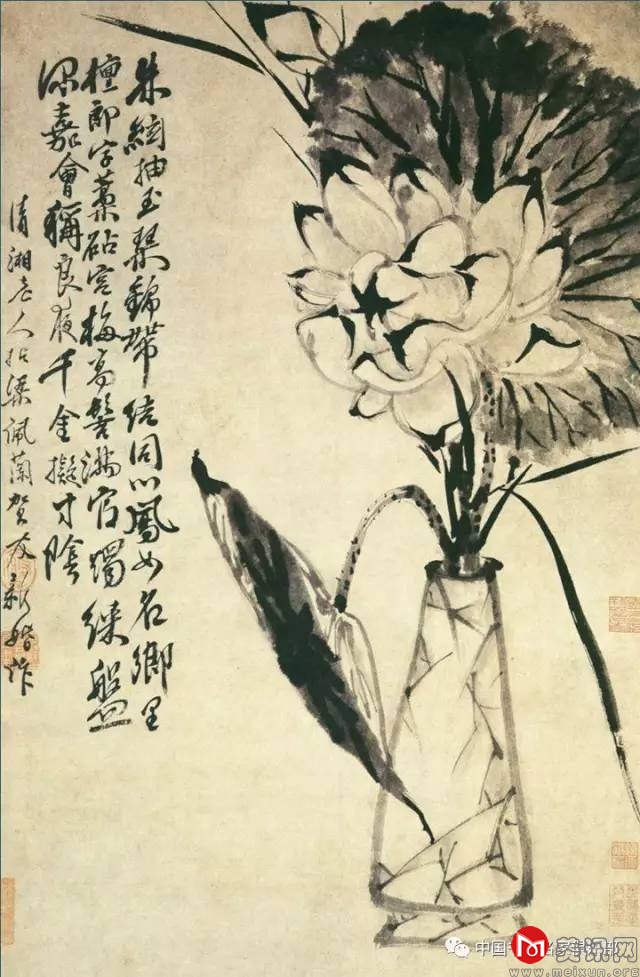 朱絃抽玉琴錦帶結同心鳳女名鄉里
檀郎字藁砧宮梅高髻滿官燭綠盤
深嘉會稱良夜千金擬寸陰
清湘老人拈梁佩蘭賀友新婚作
中国
美讯网
www.meixun.org